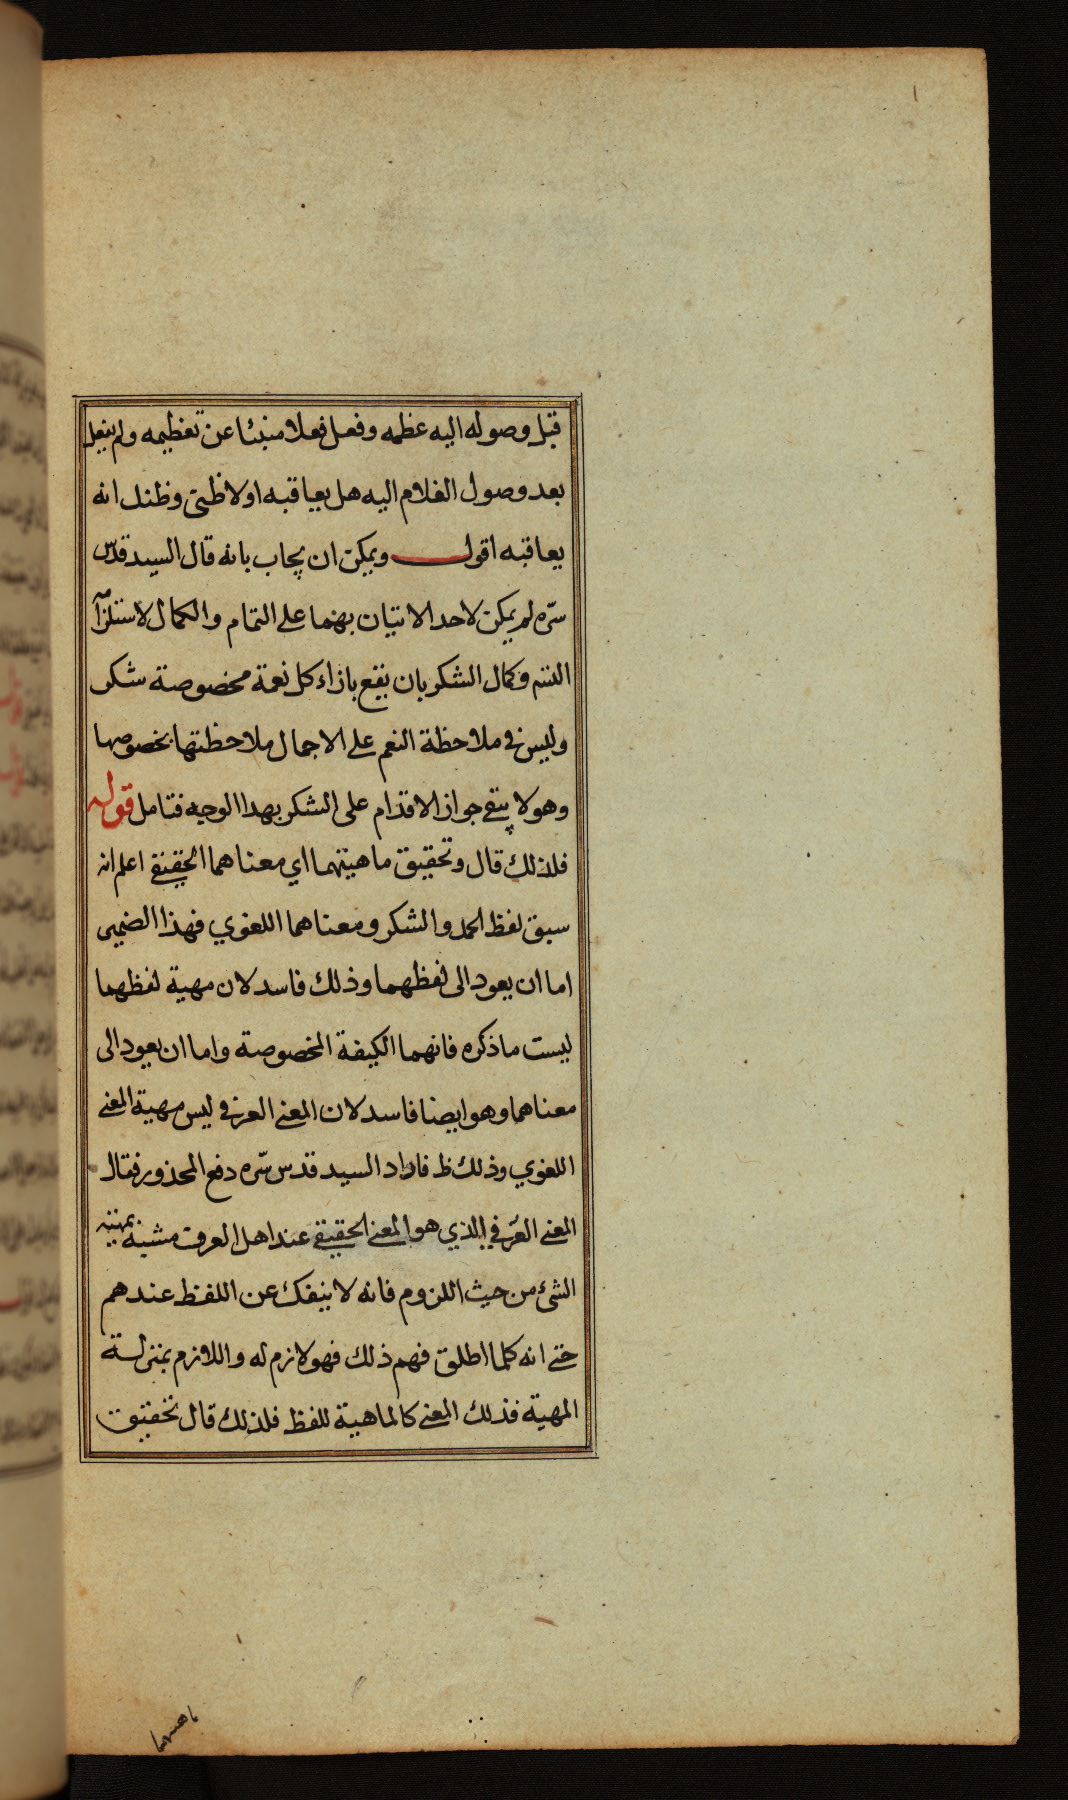 قبل وصوله اليه عظمه وفعل فعلا منبئا عن تعظيمه ولم يفعل
بعد وصول الغلام اليه هل يعاقبه اولا ظنى وظنك انه
يعاقبه اقول ويمكن ان يجاب بانه قال السيد قدس
سره لم يمكن لاحد الاتيان بهما على التمام والكمال لاستلزام
التتم وكمال الشكر بان يقع بازاء كل نعمة مخصوصة شكر
وليس في ملاحظة النعم على الاجمال ملاحظتها بخصوصها
وهو لا ينفى جواز الاقدام على الشكر بهذا الوجه فتامل قوله
فلذلك قال وتحقيق ماهيتهما اي معناهما الحقيقي اعلم انه
سبق لفظ الحمد والشكر ومعناهما اللغوي فهذا الضمير
اما ان يعود الى لفظهما وذلك فاسد لان مهية لفظهما
ليست ما ذكره فانهما الكيفة المخصوصة واما ان يعود الى
معناهما وهو ايضا فاسد لان المعنى العرفي ليس مهية المعنى
اللغوي وذلك ظ فاراد السيد قدس سره دفع المحذور فقال
المعنى العرفي الذي هو المعنى الحقيقي عند اهل العرف مشبه بمهية
الشئ من حيث اللزوم فانه لا ينفك عن اللفظ عندهم
حتى انه كلما اطلق فهم ذلك فهو لازم له واللازم بمنزلة
المهية فذلك المعنى كالماهية للفظ فلذلك قال تحقيق
ماهيتهما